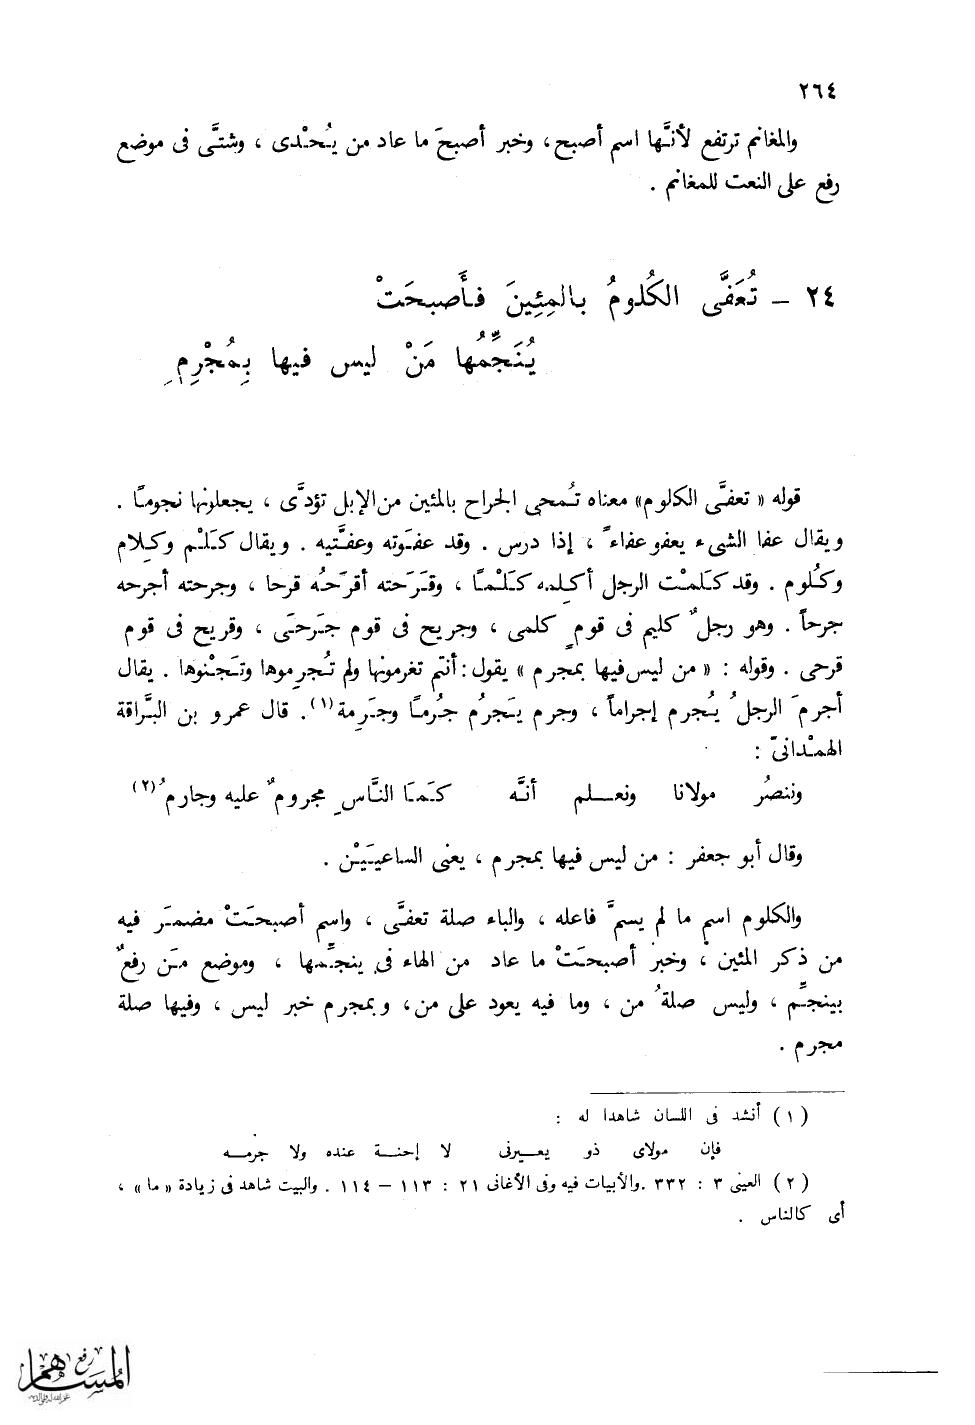 ٢٦٤
والمغانم ترتفع لأنَّها اسم أصبح، وخبر أصبحَ ما عاد من يُـحْـدى ، وشتَّى فى موضع
رفع على النعت للمغانم .
٢٤ – تُعَفَّى الكُلومُ بالمِئِينَ فأَصبحَتْ
يُنَجِّمُها مَنْ ليس فيها بِمُجْرِمِ
قوله « تعفَّى الكلوم» معناه تُـمحى الجراح بالمئين من الإبل تؤدَّى ، يجعلونها نجومـًا .
ويقال عفا الشىء يعفو عفاءً ، إذا درس . وقد عفـَوته وعفـَّتيه . ويقال كـَلـْم وكـِلام
وكـُلوم . وقد كـَلمـْت الرجل أكـِلمه كـَلـْمـًا ، وقـَرَحته أقرَحـُه قرحا ، وجرحته أجرحه
جرحاً . وهو رجلٌ كليم فى قومٍ كلمى ، وجريح فى قوم جـَرحـَى ، وقريح فى قوم
قرحى . وقوله : « من ليس فيها بمجرم » يقول : أنتم تغرمونها ولم تـُجرِموها وتـَجـْنوها . يقال
أجرمَ الرجلُ يـُجرم إجراماً ، وجرم يـَجرُم جـُرمـًا وجـَرِمة(١). قال عمرو بن البـَّراقة
الهمـْدانىّ :
وننصُر مولانا ونعـلم أنـَّه كـَمـَا النـَّاسِ مجرومٌ عليه وجارمُ(٢)
وقال أبو جعفر : من ليس فيها بمجرم ، يعنى الساعيـَيـْن .
والكلوم اسم ما لم يسمَّ فاعله ، والباء صلة تعفـَّى ، واسم أصبحـَتْ مضمـَر فيه
من ذكر المئين ، وخبر أصبحـَتْ ما عاد من الهاء فى ينجـِّمها ، وموضع مـَن رفعٌ
بينجـِّم ، وليس صلةُ من ، وما فيه يعود على من، وبمجرم خبر ليس ، وفيها صلة
مجرم .
( ١ ) أنشد فى اللسان شاهدا له :
فإن مولاى ذو يعـيرنى لا إحنـة عنده ولا جرمـه
( ٢ ) العينى ٣ : ٣٣٢ .والأبيات فيه وفى الأغانى ٢١ : ١١٣ – ١١٤ . والبيت شاهد فى زيادة « ما » ،
أى كالناس .